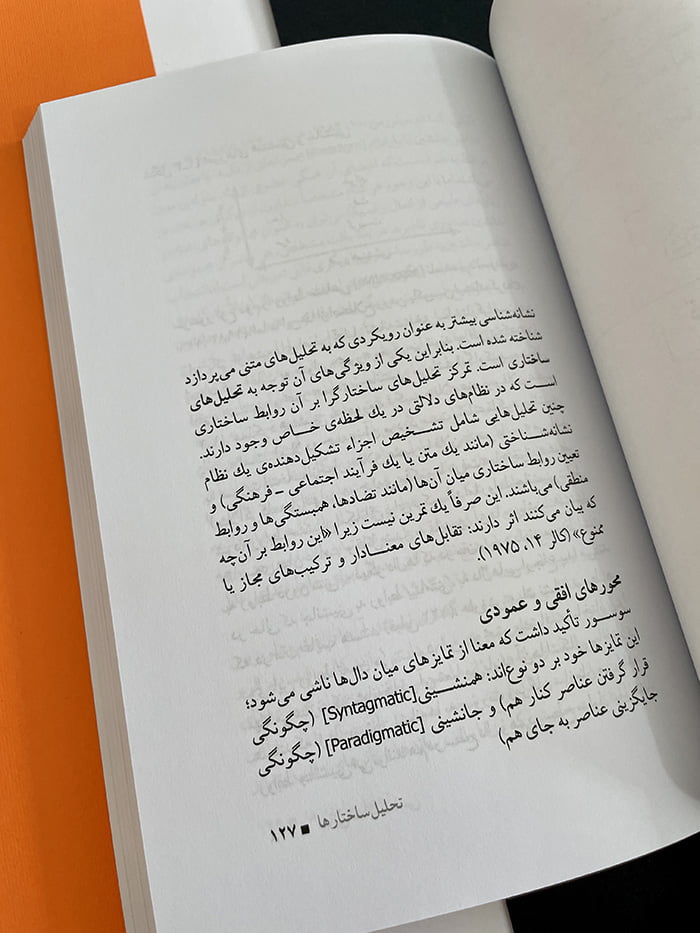 نشانه‌شناسی بیشتر به عنوان رویکردی که به تحلیل‌های متنی می‌پردازد
شناخته شده است. بنابراین یکی از ویژگی‌های آن توجه به تحلیل‌های
ساختاری است. تمرکز تحلیل‌های ساختارگرا بر آن روابط ساختاری
است که در نظام‌های دلالتی در یك لحظه‌ی خاص وجود دارند.
چنین تحلیل‌هایی شامل تشخیص اجزاء تشکیل‌دهنده‌ی یك نظام
نشانه‌شناختی (مانند یك متن یا یك فرآیند اجتماعی - فرهنگی) و
تعیین روابط ساختاری میان آن‌ها (مانند تضادها، همبستگی‌ها و روابط
منطقی) می‌باشند. این صرفاً یك تمرین نیست زیرا «این روابط بر آن‌چه
که بیان می‌کنند اثر دارند: تقابل‌های معنادار و ترکیب‌های مجاز یا
ممنوع» (کالر ۱۴، ۱۹۷۵)
محورهای افقی و عمودی
سوسور تأکید داشت که معنا از تمایزهای میان دال‌ها ناشی می‌شود؛
این تمایزها خود بر دو نوع‌اند: همنشینی [Syntagmatic] (چگونگی
قرار گرفتن عناصر کنار هم) و جانشینی [Paradigmatic] (چگونگی
جایگزینی عناصر به جای هم)
تحلیل ساختارها ■ ۱۲۷